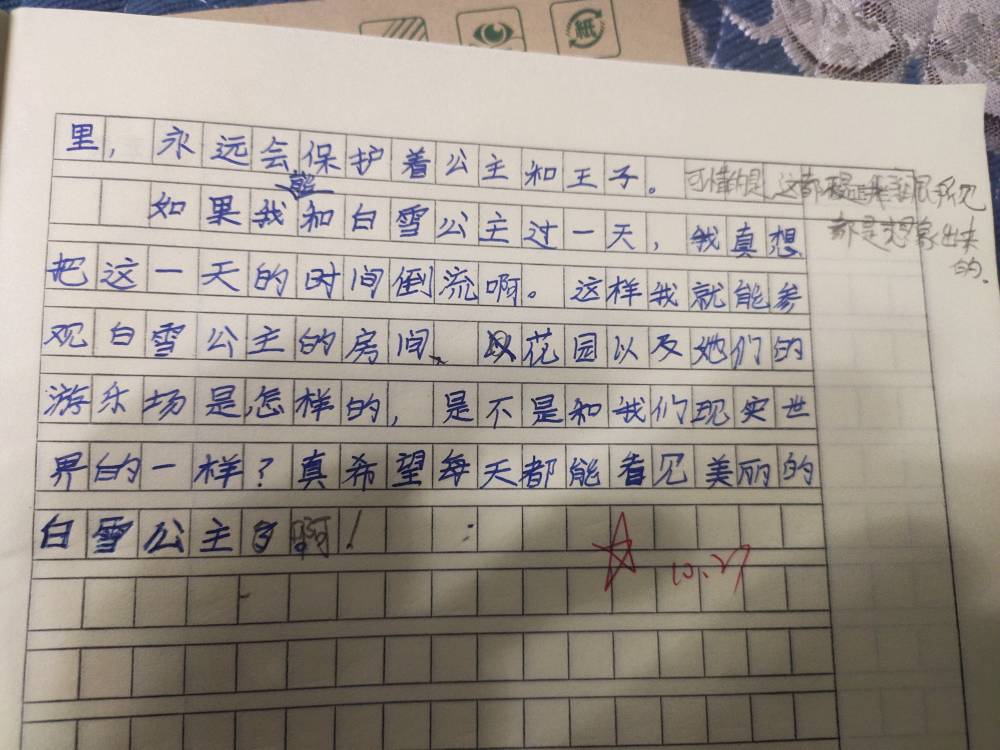 紙
里，永远会保护着公主和王子。可惜的是，这都不是亲眼所见
都是想象出来
的.
能
如果我和白雪公主过一天，我真想
把这一天的时间倒流啊。这样我就能参
观白雪公主的房间、花园以及她们的
游乐场是怎样的，是不是和我们现实世
界的一样？真希望每天都能看见美丽的
白雪公主啊！
10.27